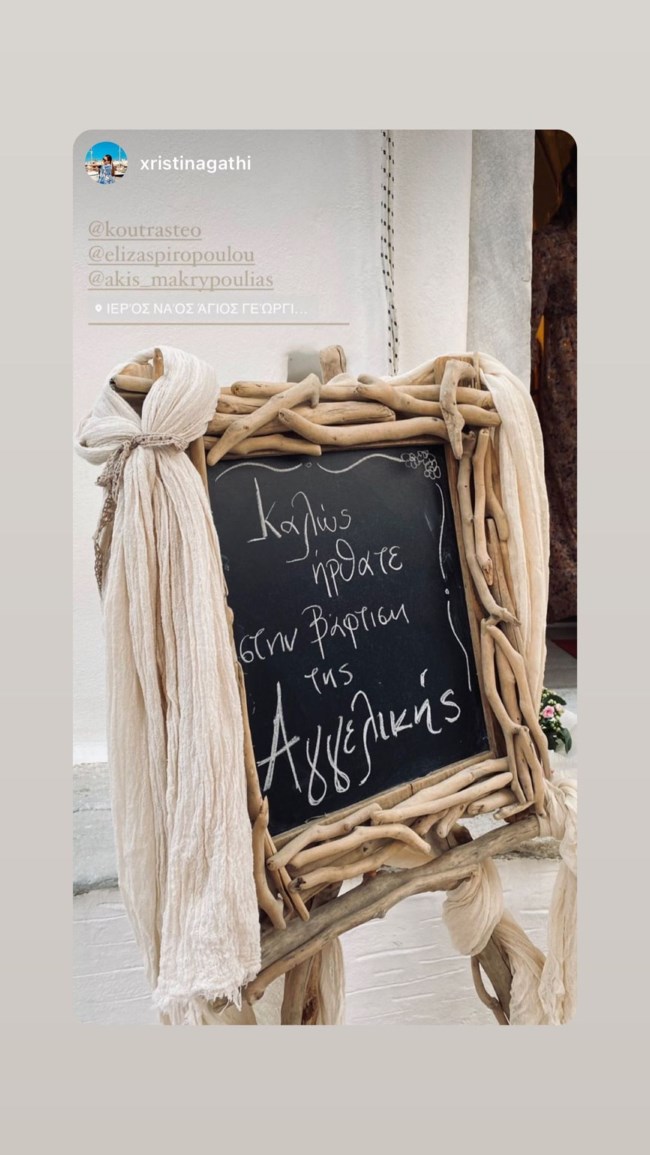 xristinagathi
@koutrasteo
@elizaspiropoulou
@akis_makrypoulias
ΙΕΡΌΣ ΝΑΌΣ ΆΓΙΟΣ ΓΕΏΡΓΙ...
Καλώς
ήρθατε
στην βάφτιση
της
Αγγελικής